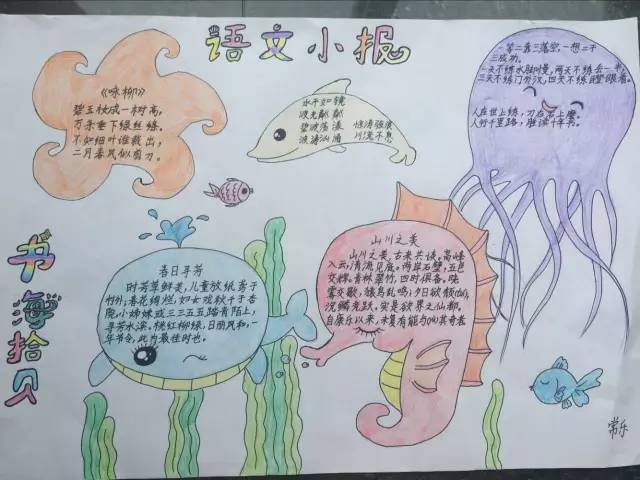 语文小报
书海拾贝
《咏柳》
碧玉妆成一树高,
万条垂下绿丝绦。
不知细叶谁裁出,
二月春风似剪刀。
水平如镜
波光粼粼
碧波荡漾 惊涛骇浪
波涛汹涌 川流不息
一等二靠三落空,一想二干
三成功。
一天不练手脚慢,两天不练丢一半,
三天不练门外汉,四天不练瞪眼看。
人在世上练,刀在石上磨。
人行千里路,胜读十年书。
春日寻芳
时芳草鲜美,儿童放纸鸢于
村外,春花绚烂,如女戏秋千于杏
院,小姊妹或三三五五踏青陌上,
寻芳水滨。桃红柳绿,日丽风和,一
年节令,此为最佳时也。
山川之美
山川之美,古来共谈。高峰
入云,清流见底。两岸石壁,五色
交辉。青林翠竹,四时俱备。晓
雾交歇,猿鸟乱鸣;夕日欲颓(tuí),
沉鳞竞跃。实是欲界之仙都。
自康乐以来,未复有能与(yù)其奇者
常乐